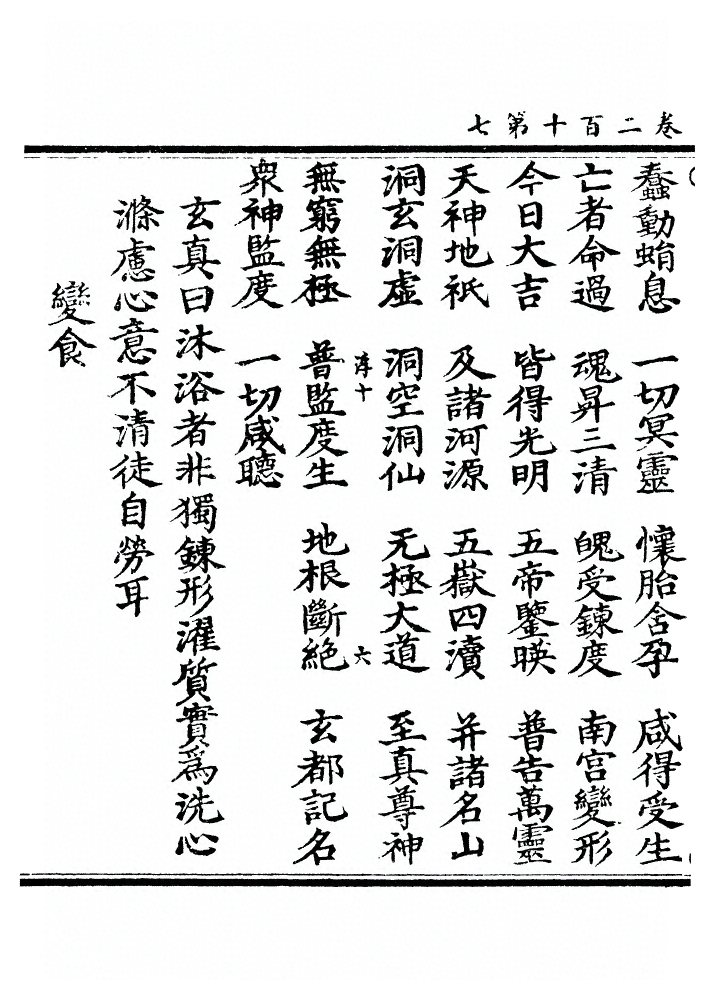 卷二百十第七
蠢動蛕息　一切冥靈　懷胎含孕　咸得受生
亡者命過　魂昇三清　魄受鍊度　南宮變形
今日大吉　皆得光明　五帝鑒暎　普告萬靈
天神地祇　及諸河源　五嶽四瀆　并諸名山
洞玄洞虛　洞空洞仙　无極大道　至真尊神
十　六
無窮無極　普監度生　地根斷絕　玄都記名
衆神監度　一切咸聽
玄真曰沐浴者非獨鍊形濯質實爲洗心
滌慮心意不清徒自勞耳
變食